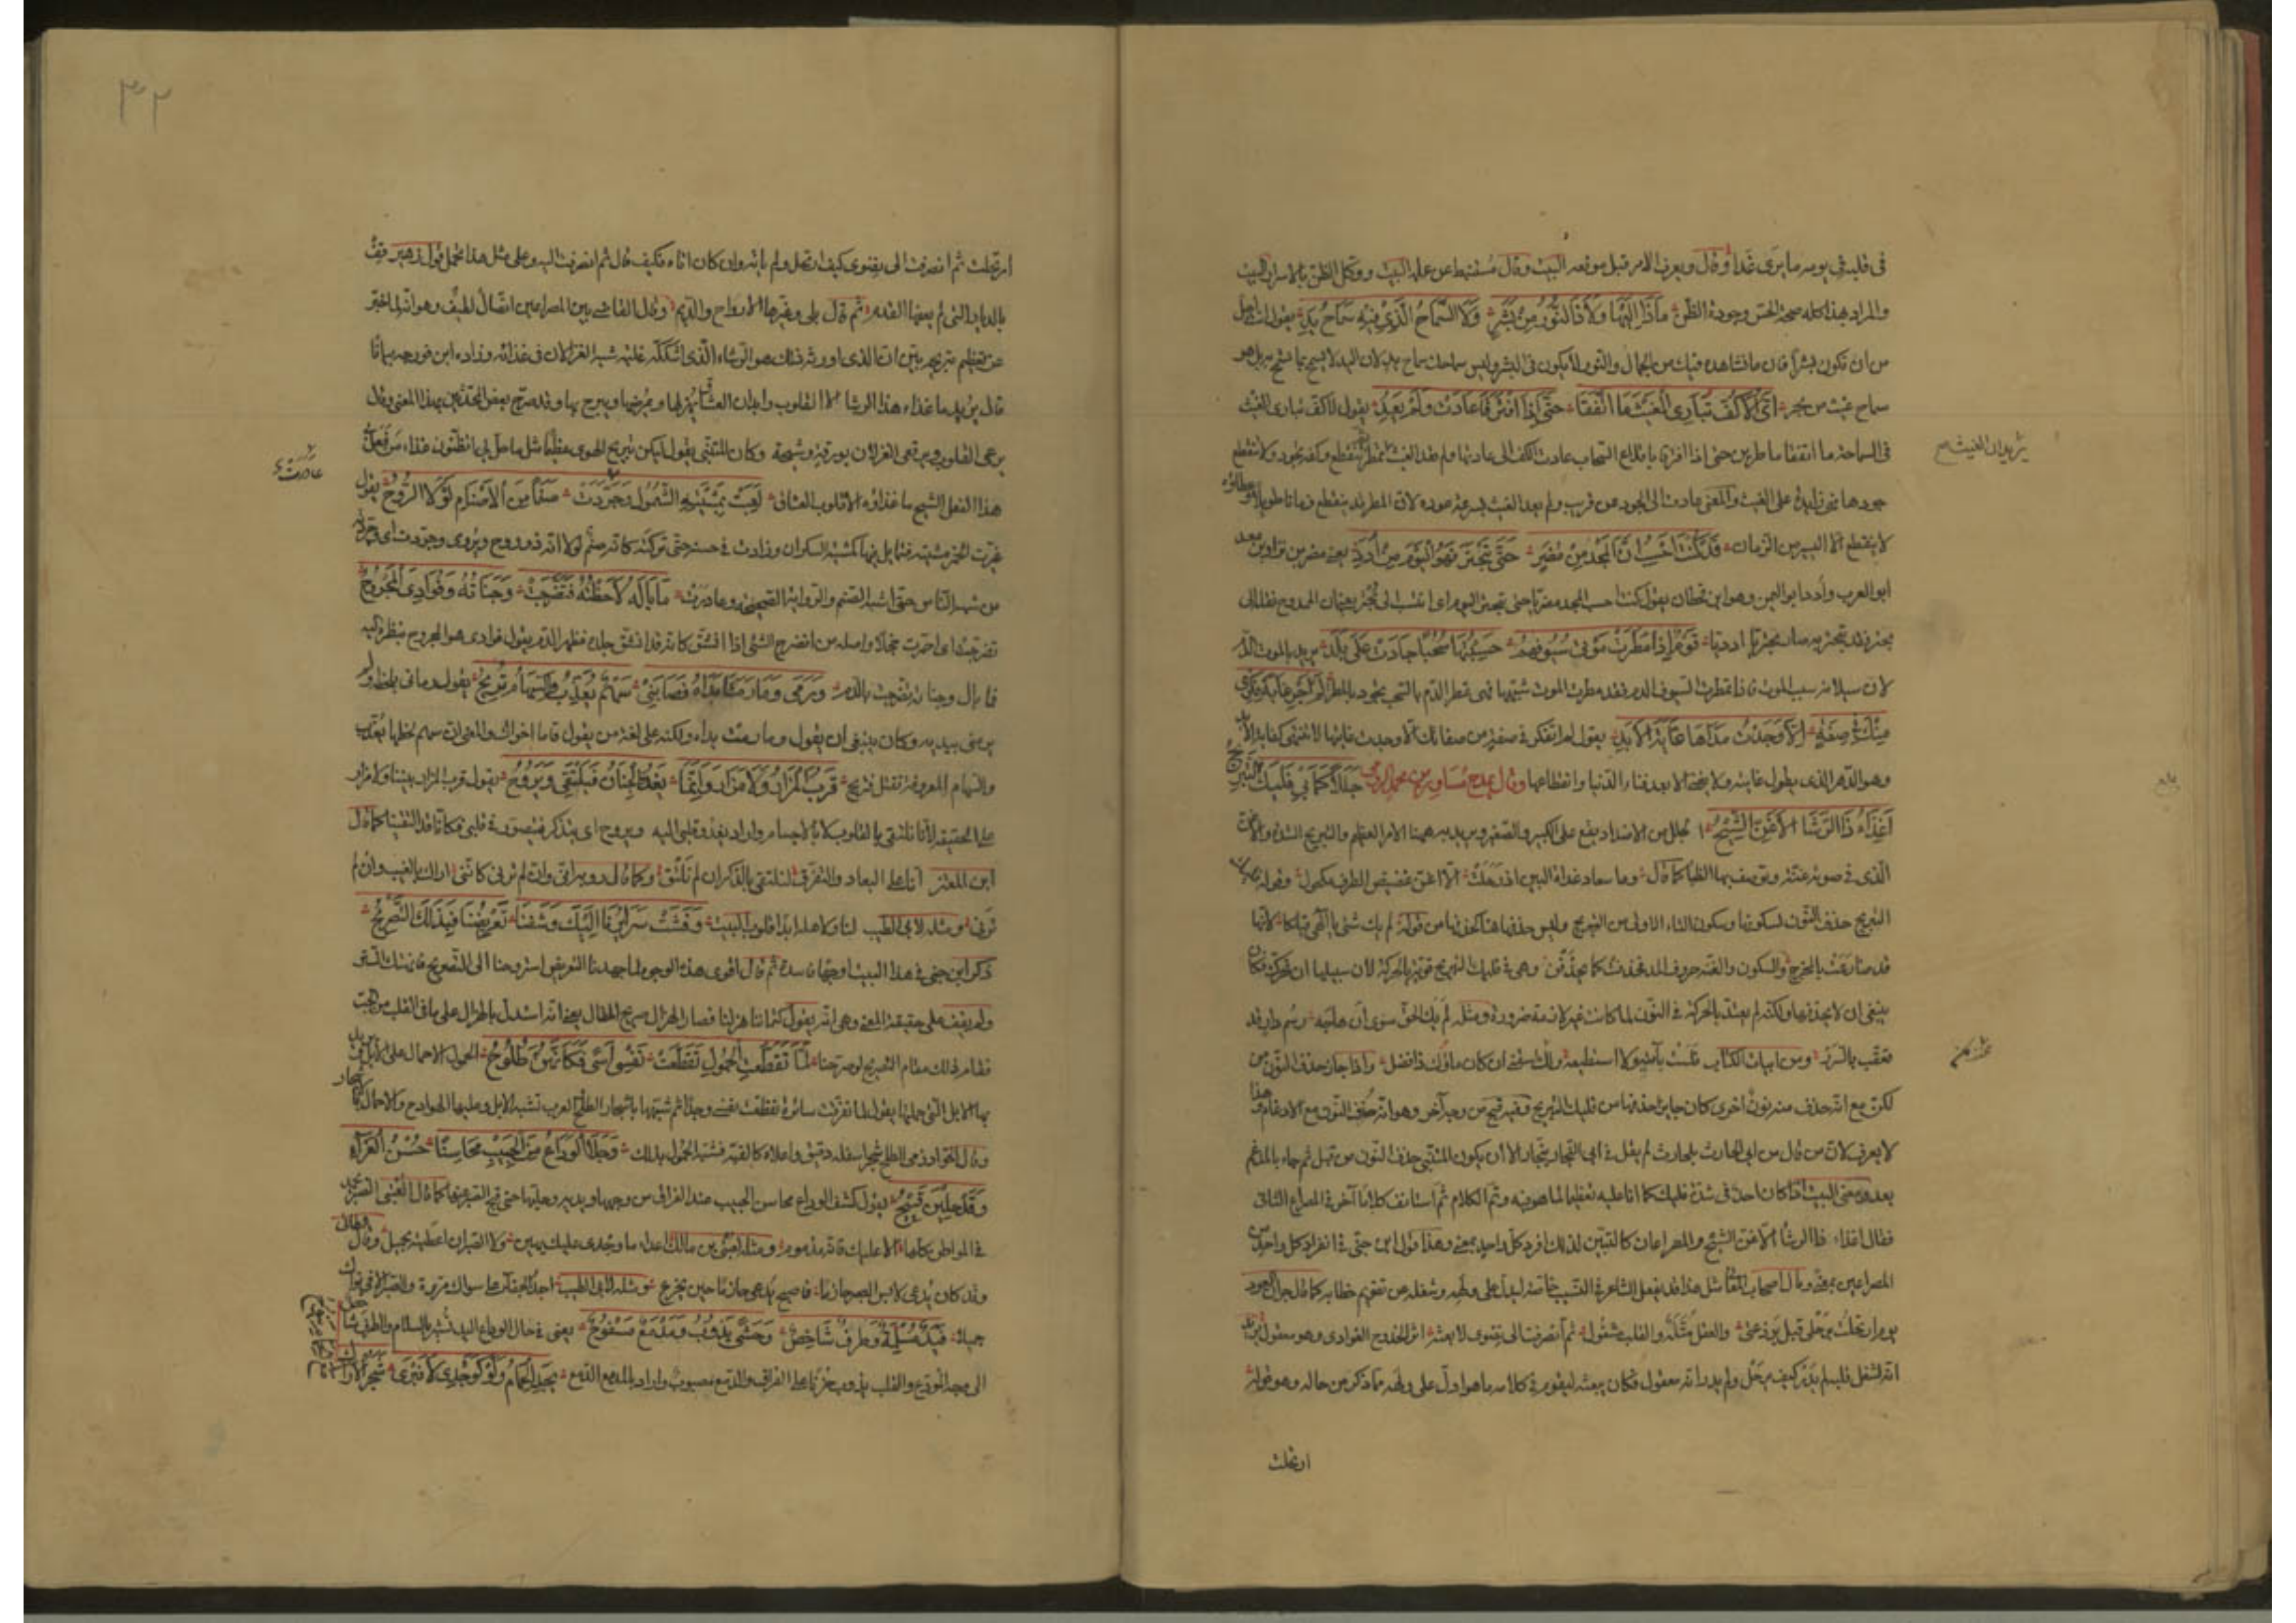 في قلبه في يومه ما يرى غدا وقال ويعرف الامر قبل موقعه البيت وقال مستنبط من علمه البيت ووكل الظن بالاسرار البيت
والمراد بهذا كله صحة الحس وجودة الظن ماذا البهاء ولا ذا النور من بشر ولا السماح الذي فيه سماح يد يقول انت اجل
من ان تكون بشرا فان ما نشاهده فيك من الجمال والنور لا يكون في البشر وليس سماحك سماح يد لان اليد لا تسمح بما تسمح به بل هو
سماح غيث من بحر اي الاكف تباري الغيث ما اتفقا حتى اذا افترقا عادت ولم يعد يقول اي كف تباري الغيث
في السماحة ما اتفقا ماطرين حتى اذا افترقا باقلاع السحاب عادت الكف الى عادتها ولم يعد الغيث يمطر ينقطع وكفه تجود ولا ينقطع
جودها فهي زايدة على الغيث والمعنى عادت الى الجود من قريب ولم يعد الغيث لسرعة عوده لان المطر قد ينقطع زمانا طويلا وعطاؤه
لا ينقطع الا اليسير من الزمان قد كنت احسب ان المجد من مضر حتى تبحتر فهو اليوم من ادد يعني مضر بن نزار بن معد
ابو العرب وادد ابو اليمن وهو ابن قحطان يقول كنت احسب المجد مضريا حتى تبحتر اليوم اي انتسب الى بحتر يعني ان الممدوح نقله الى
بحتر فقد تبحتر به صار بحتريا ادديا قوم اذا امطرت موتا سيوفهم حسبتها سحبا جادت على بلد يريد بالموت الدم
لان سيلانه سبب الموت فاذا قطرت السيوف الدم فقد مطرت الموت شبهها وهي تقطر الدم بالسحب تجود بالمطر لم اجر غاية فكري
منك في صفة الا وجدت مداها غاية الابد يقول لم اتفكر في صفة من صفاتك الا وجدت غايتها لا تنتهي كغاية الابد
وهو الدهر الذي يطول غايته ولا ينتهي الا بعد فناء الدنيا وانقطاعها وقال يمدح مساور بن محمد الرومي جللا كما بي فليك التبريح
اغذاء ذا الرشا الاغن الشيح الجلل من الاضداد يقع على الكبير والصغير ويريد به ههنا الامر العظيم والتبريح الشدة والاغن
الذي في صوته غنة ويوصف بها الظباء كما قال وما سعاد غداة البين اذ رحلت الا اغن غضيض الطرف مكحول وقوله فليك
التبريح حذف النون لسكونها وسكون التاء الاولى من التبريح وليس حذفها هنا كحذفها من قوله لم يك شيء يا الهي قبلكا لانها
قد ضارعت بالمخرج والسكون والغنة حروف المد فحذفت كما يحذفن وهي في فليك التبريح قوية بالحركة لان سبيلها ان تحرك فكان
ينبغي ان لا يحذفها ولكنه لم يعتد بالحركة في النون لما كانت غير لازمة ضرورة ومثله لم يك الحق سوى ان هاجه رسم دار قد
تعفى بالسرر ومن ابيات الكتاب فلست بآتيه ولا استطيعه ولاك اسقني ان كان ماؤك ذا فضل واذا جاز حذف النون من
لكن مع انه حذف منه نون اخرى كان جايزا حذفها من فليك التبريح وفيه قبح من وجه آخر وهو انه حذف النون مع الادغام وهذا
لا يعرف لان من قال من ابي الحارث بلحارث لم يقل في ابي النجار بنجار الا ان يكون المتنبي حذف النون من قبل ثم جاء بالمدغم
بعد ومعنى البيت اذا كان احد في شدة فليك كما انا عليه تعظيما لما هو فيه وتم الكلام ثم استأنف كلاما آخر في المصراع الثاني
فقال اغذاء ذا الرشا الاغن الشيح والمصراعان كالبيتين لذلك افرد كل واحد بمعنى وهذا قول ابن جني في انفراد كل واحد من
المصراعين بمعنى وقال اصحاب المعاني مثل هذا قد يفعل الشاعر في النسيب خاصة ليدل على ولهه وشغله عن تقويم خطابه كما قال جران العود
يوم ارتحلت برحلي قبل برذعتي والعقل متله والقلب مشغول ثم انصرفت الى نضوي لابعثه اثر الحدوج الغوادي وهو معقول يريد
انه لشغل قلبه لم يدر كيف يرحل ولم يدر انه معقول فكان يبعثه ليقوم في كلامه ما هو ادل على ولهه مما ذكر من حاله وهو قوله
ارتحلت
يريدان الغيث
٣٢
ارتحلت ثم انصرفت الى نضوي كيف ارتحل ولم ياته وان كان اتاه فكيف قال ثم انصرفت اليه وعلى مثل هذا يحمل قول زهير قف
بالديار التي لم يعفها القدم ثم قال بلى وغيرها الارواح والديم وقال القاضي بين المصراعين اتصال لطيف وهو انه لما اخبر
عن تعظيم تبريحه بين ان الذي اورثه ذلك هو الرشاء الذي شككه غلبة شبه الغزلان في غذائه وزاده ابن فورجه بيانا
قال يريد ما غذاء هذا الرشا الا القلوب وابدان العشاق يهزلها ويمرضها ويبرح بها وقد صرح بعض المحدثين بهذا المعنى وقال
يرعى القلوب ويرتعي الغزلان بورقة وشيحه وكان المتنبي يقول ليكن تبريح الهوى عظيما مثل ما حل بي اتظنون غذاء من فعل
هذا الفعل الشيح ما غذاؤه الا قلوب العشاق لعبت بمشيته الشمول وجردت صنما من الاصنام لولا الروح يقول
غيرت الخمر مشيته فتمايل فيها كمشية السكران وزادت في حسنه حتى تركته كانه صنم لولا انه ذو روح ويروى وجردت اي جردته
من شبه الناس حتى اشبه الصنم والرواية الصحيحة وغادرت ما باله لاحظته فتضرجت وجناته وفؤادي المجروح
تضرجت اي احمرت خجلا واصله من انضرج الشيء اذا انشق كانه قد انشق جلده فظهر الدم يقول فؤادي هو المجروح بنظره اليه
فما بال وجناته تضرجت بالدم ورمى وما رمتا يداه فصابني سهم يعذب والسهام تريح يقول رماني بلحظه ولم
يرمني بيديه وكان ينبغي ان يقول وما رمت يداه ولكنه على لغة من يقول قاما اخواك والمعنى ان سهم لحظها يعذب
والسهام المعروفة تقتل فتريح قرب المزار ولا مزار وانما يغدو الجنان فيلتقي ويروح يقول قرب المزار بيننا ولا مزار
على الحقيقة لانا نلتقي بالقلوب لا بالاجسام واراد يغدو قلبي اليه ويروح اي يتذكر فيتصور في قلبي فكانا قد التقينا كما قال
ابن المعتز انا على البعاد والتفرق لنلتقي بالذكر ان لم نلتق وكما قال رؤبة اني وان لم ترني كانني اراك بالغيب وان لم
ترني ومثله لابي الطيب لنا ولاهله ابدا قلوب البيت وفشت سرايرنا اليك وشفنا تعريضنا فبدا لك التصريح
ذكر ابن جني في هذا البيت اوجها فاسدة ثم قال اقوى هذه الوجوه لما جهدنا التعريض استروحنا الى التصريح فانهتك الستر
ولم يقف على حقيقة المعنى وهي انه يقول كتماننا هزلنا فصار الهزال صريح المقال يعني انه استدل بالهزال على ما في القلب من الحب
فقام ذلك مقام التصريح لو صرحنا لما تقطعت الحمول تقطعت نفسي اسى وكانهن طلوح الحمول الاحمال على الابل يريد
بها الابل التي حملها يقول لما تفرقت سائرة تقطعت نفسي وجدا ثم شبهها باشجار الطلح والعرب تشبه الابل وعليها الهوادج والاحمال بالاشجار
وقال الخوارزمي الطلح شجر اسفله دقيق واعلاه كالقبة فشبه الحمول بذلك وجلا الوداع من الحبيب محاسنا حسن العزاء
وقد جلين قبيح يقول كشف الوداع محاسن الحبيب عند الفراق من وجهها ويديه وحليها حتى قبح الصبر عنها كما قال العتبي الصبر يحمد
في المواطن كلها الا عليك فانه مذموم ومثله لعتبي بن مالك اعداء ما وجدي عليك بهين ولا الصبر ان اعطيته بجميل وقال الطائي
وقد كان يدعى لابس الصبر حازما فاصبح يدعى حازما حين يجزع ومثله لابي الطيب اجد الجفاء على سواك مروة والصبر الا في نواك
جميلا فيد مسلمة وطرف شاخص وحشى يذوب ومدمع مسفوح يعني في حال الوداع اليد تشير بالسلام والطرف شاخص
الى وجه المودع والقلب يذوب حزنا على الفراق والدمع مصبوب واراد بالمدمع الدمع يجد الحمام ولو كوجدي لانبرى شجر الاراك
غادرت